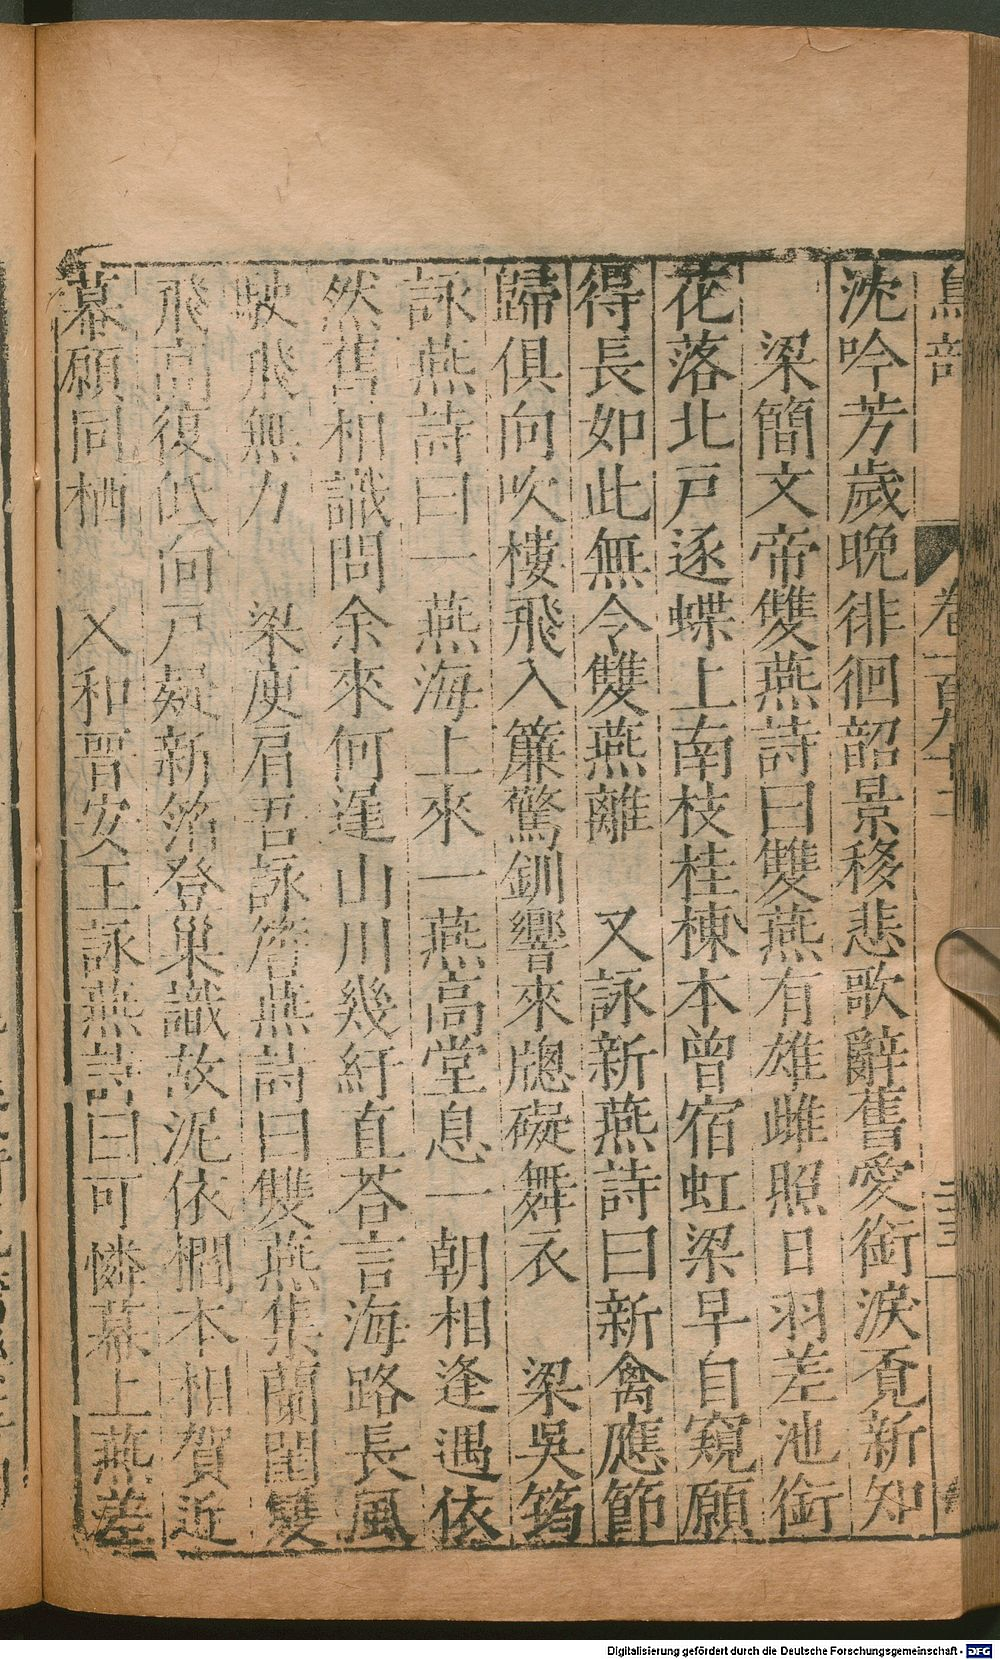 鳥部 卷一百九十 三十一
沈吟芳歲晚徘徊韶景移悲歌辭舊愛銜淚覔新知
梁簡文帝雙燕詩曰雙燕有雄雌照日羽差池銜
花落北戸逐蝶上南枝桂棟本曾宿虹梁早自窺願
得長如此無令雙燕離 又詠新燕詩曰新禽應節
歸俱向吹樓飛入簾驚釧響來牕礙舞衣 梁吳筠
詠燕詩曰一燕海上來一燕高堂息一朝相逢遇依
然舊相識問余來何遲山川幾紆直荅言海路長風
駛飛無力 梁庾肩吾詠簷燕詩曰雙燕集蘭閨雙
飛高復低向戸疑新箔登巢識故泥依櫚本相賀近
幕願同栖 乂和晋安王詠燕詩曰可憐幕上燕差
Digitalisierung gefördert durch die Deutsche Forschungsgemeinschaft - DFG